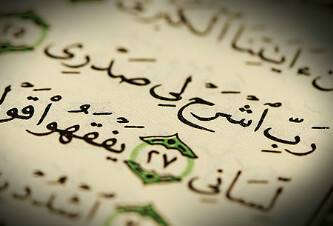 ءَايَٰتِنَا ٱلْكُبْرَى
رَبِّ ٱشْرَحْ لِي صَدْرِي
لِسَانِي ٢٧ يَفْقَهُوا۟ قَو
ٱشْدُدْ